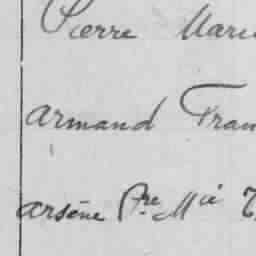 Pierre Marie
armand Fran
arsène Pre Mie T